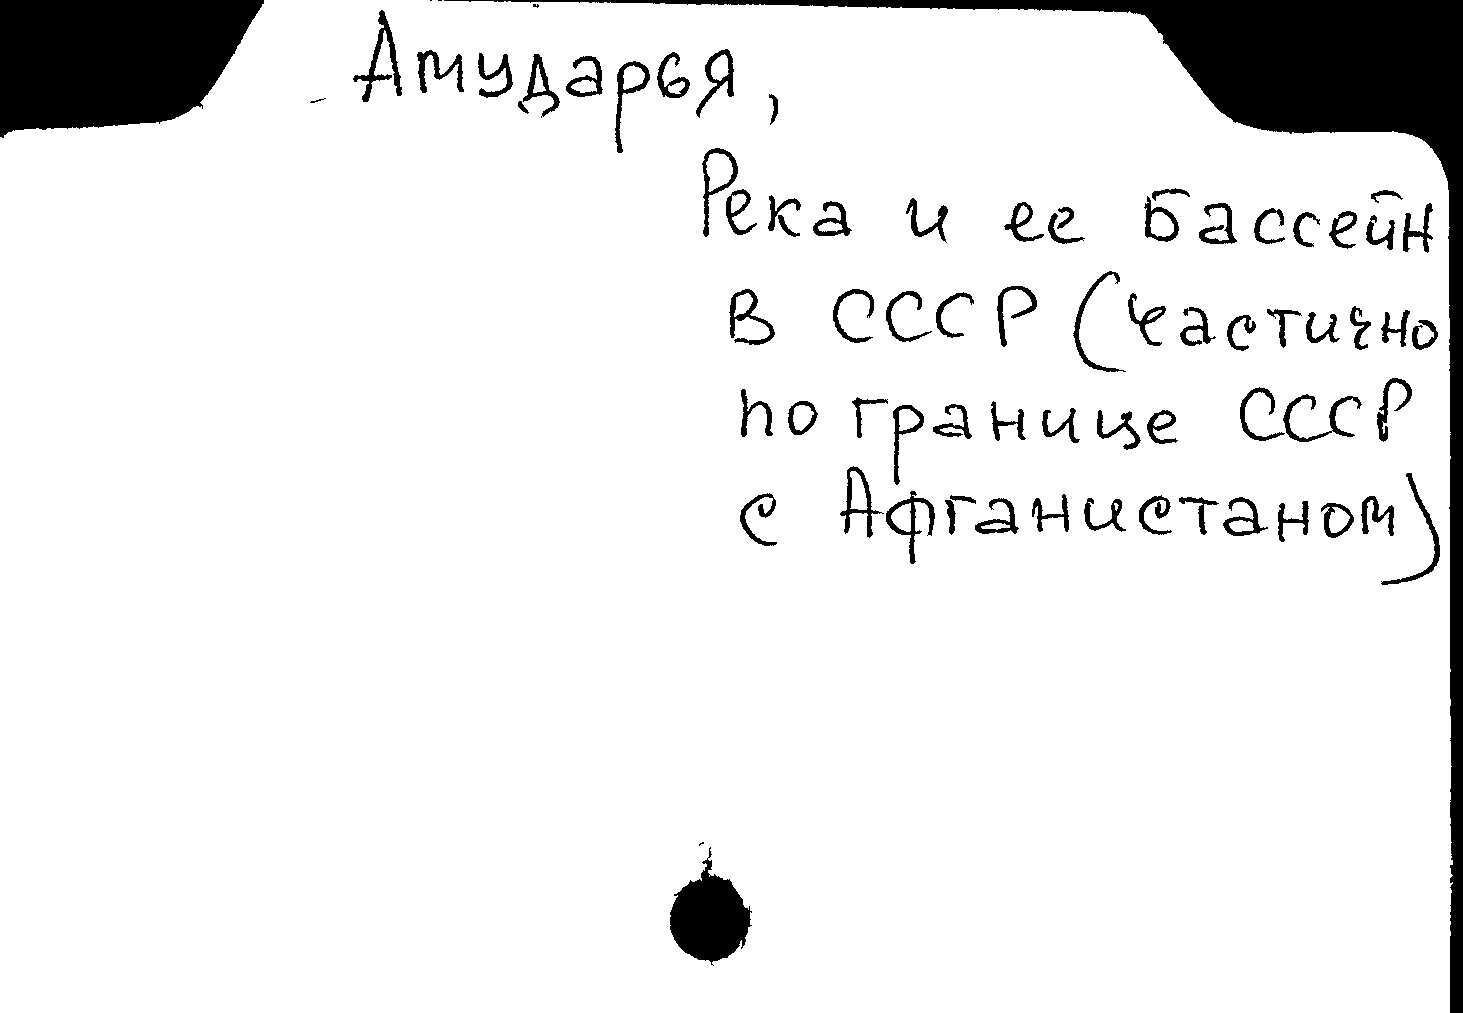 Амударья,
Река и ее бассейн
в СССР (частично
по границе СССР
с Афганистаном)